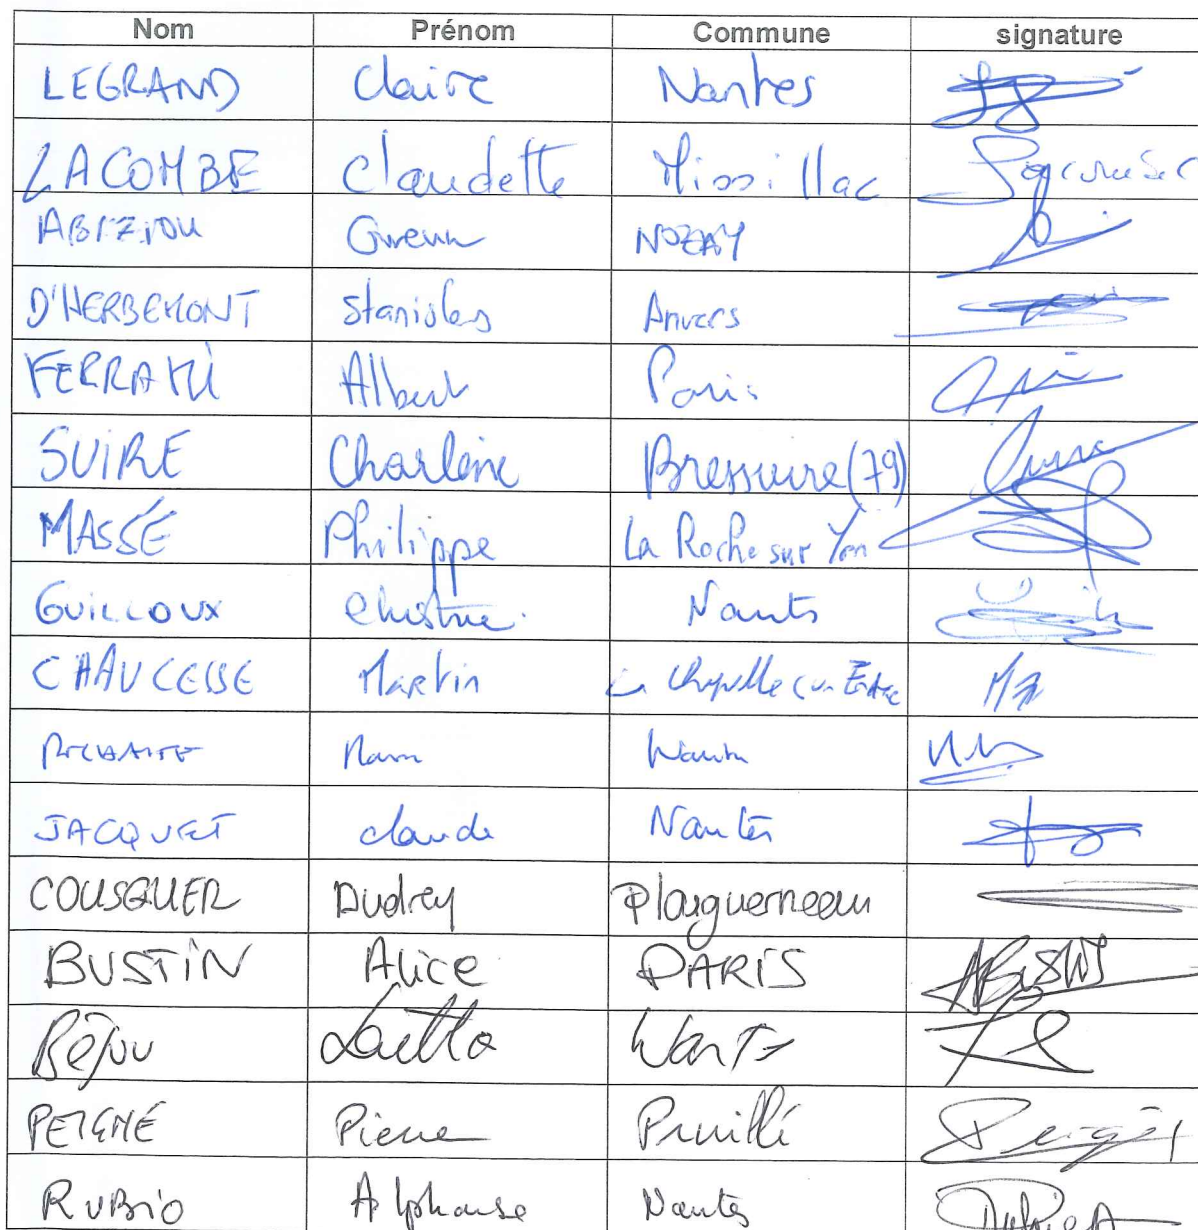 Nom Prénom Commune signature
LEGRAND Claire Nantes
LACOMBE Claudette Missillac
ABIZIOU Gwenn NOZAY
D'HERBEMONT Stanislas Anvers
FERRAMI Albert Paris
SUIRE Charlène Bressuire (79)
MASSÉ Philippe La Roche sur Yon
GUILLOUX Christine Nantes
CHAUCESSE Martin La Chapelle sur Erdre
JACQUET claude Nantes
COUSQUER Audrey Plouguerneau
BUSTIN Alice PARIS
Béjou Nantes
PEIGNÉ Pierre
RUBIO Alphonse Nantes